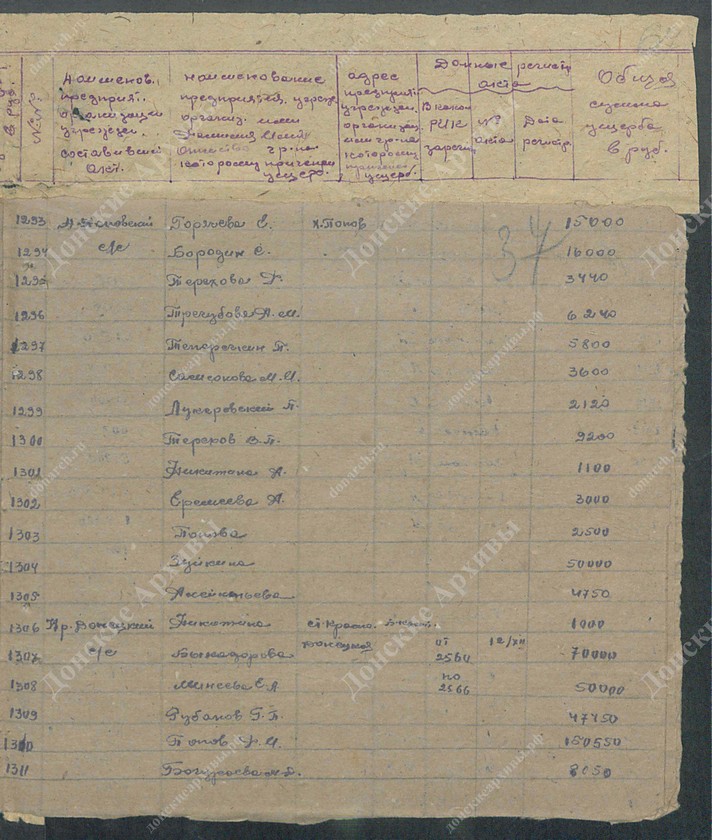 в руб.
№№
Наименов. предприят. организации учрежден. составивший акт.
Наименование предприятия, учрежд. организ. или фамилия имя отчество гр-на которому причинен ущерб.
адрес предприят. учрежден. организац. или гр-на которому ущерб.
Данные регистр акта
В каком РИК зарегис.
№ акта
Дата регистр.
Общая сумма ущерба в руб.
1293 Горячева Е. х.Попов 15000
37
1294 с/с Бородин Е. 16000
1295 Терехова 3440
1296 Трегубова А.М. 6240
1297 Теперечкин П. 5800
1298 Самсонова М.И. 3600
1299 Лукеровский П. 2120
1300 Терехов В.П. 9200
1301 Никитина А. 1100
1302 Еремеева А. 3000
1303 Попова 2500
1304 Зуйкина 50000
1305 4750
1306 Кр. Донецкий Никитина ст. Красно 1000
1307 с/с Быкадорова Донецкая от 2560 12/XII 70000
1308 Минеева Е.А по 2566 50000
1309 Рубанов Г.П. 47750
1310 Попов 150550
1311 8050
Донские Архивы
донскиеархивы.рф
donarch.ru